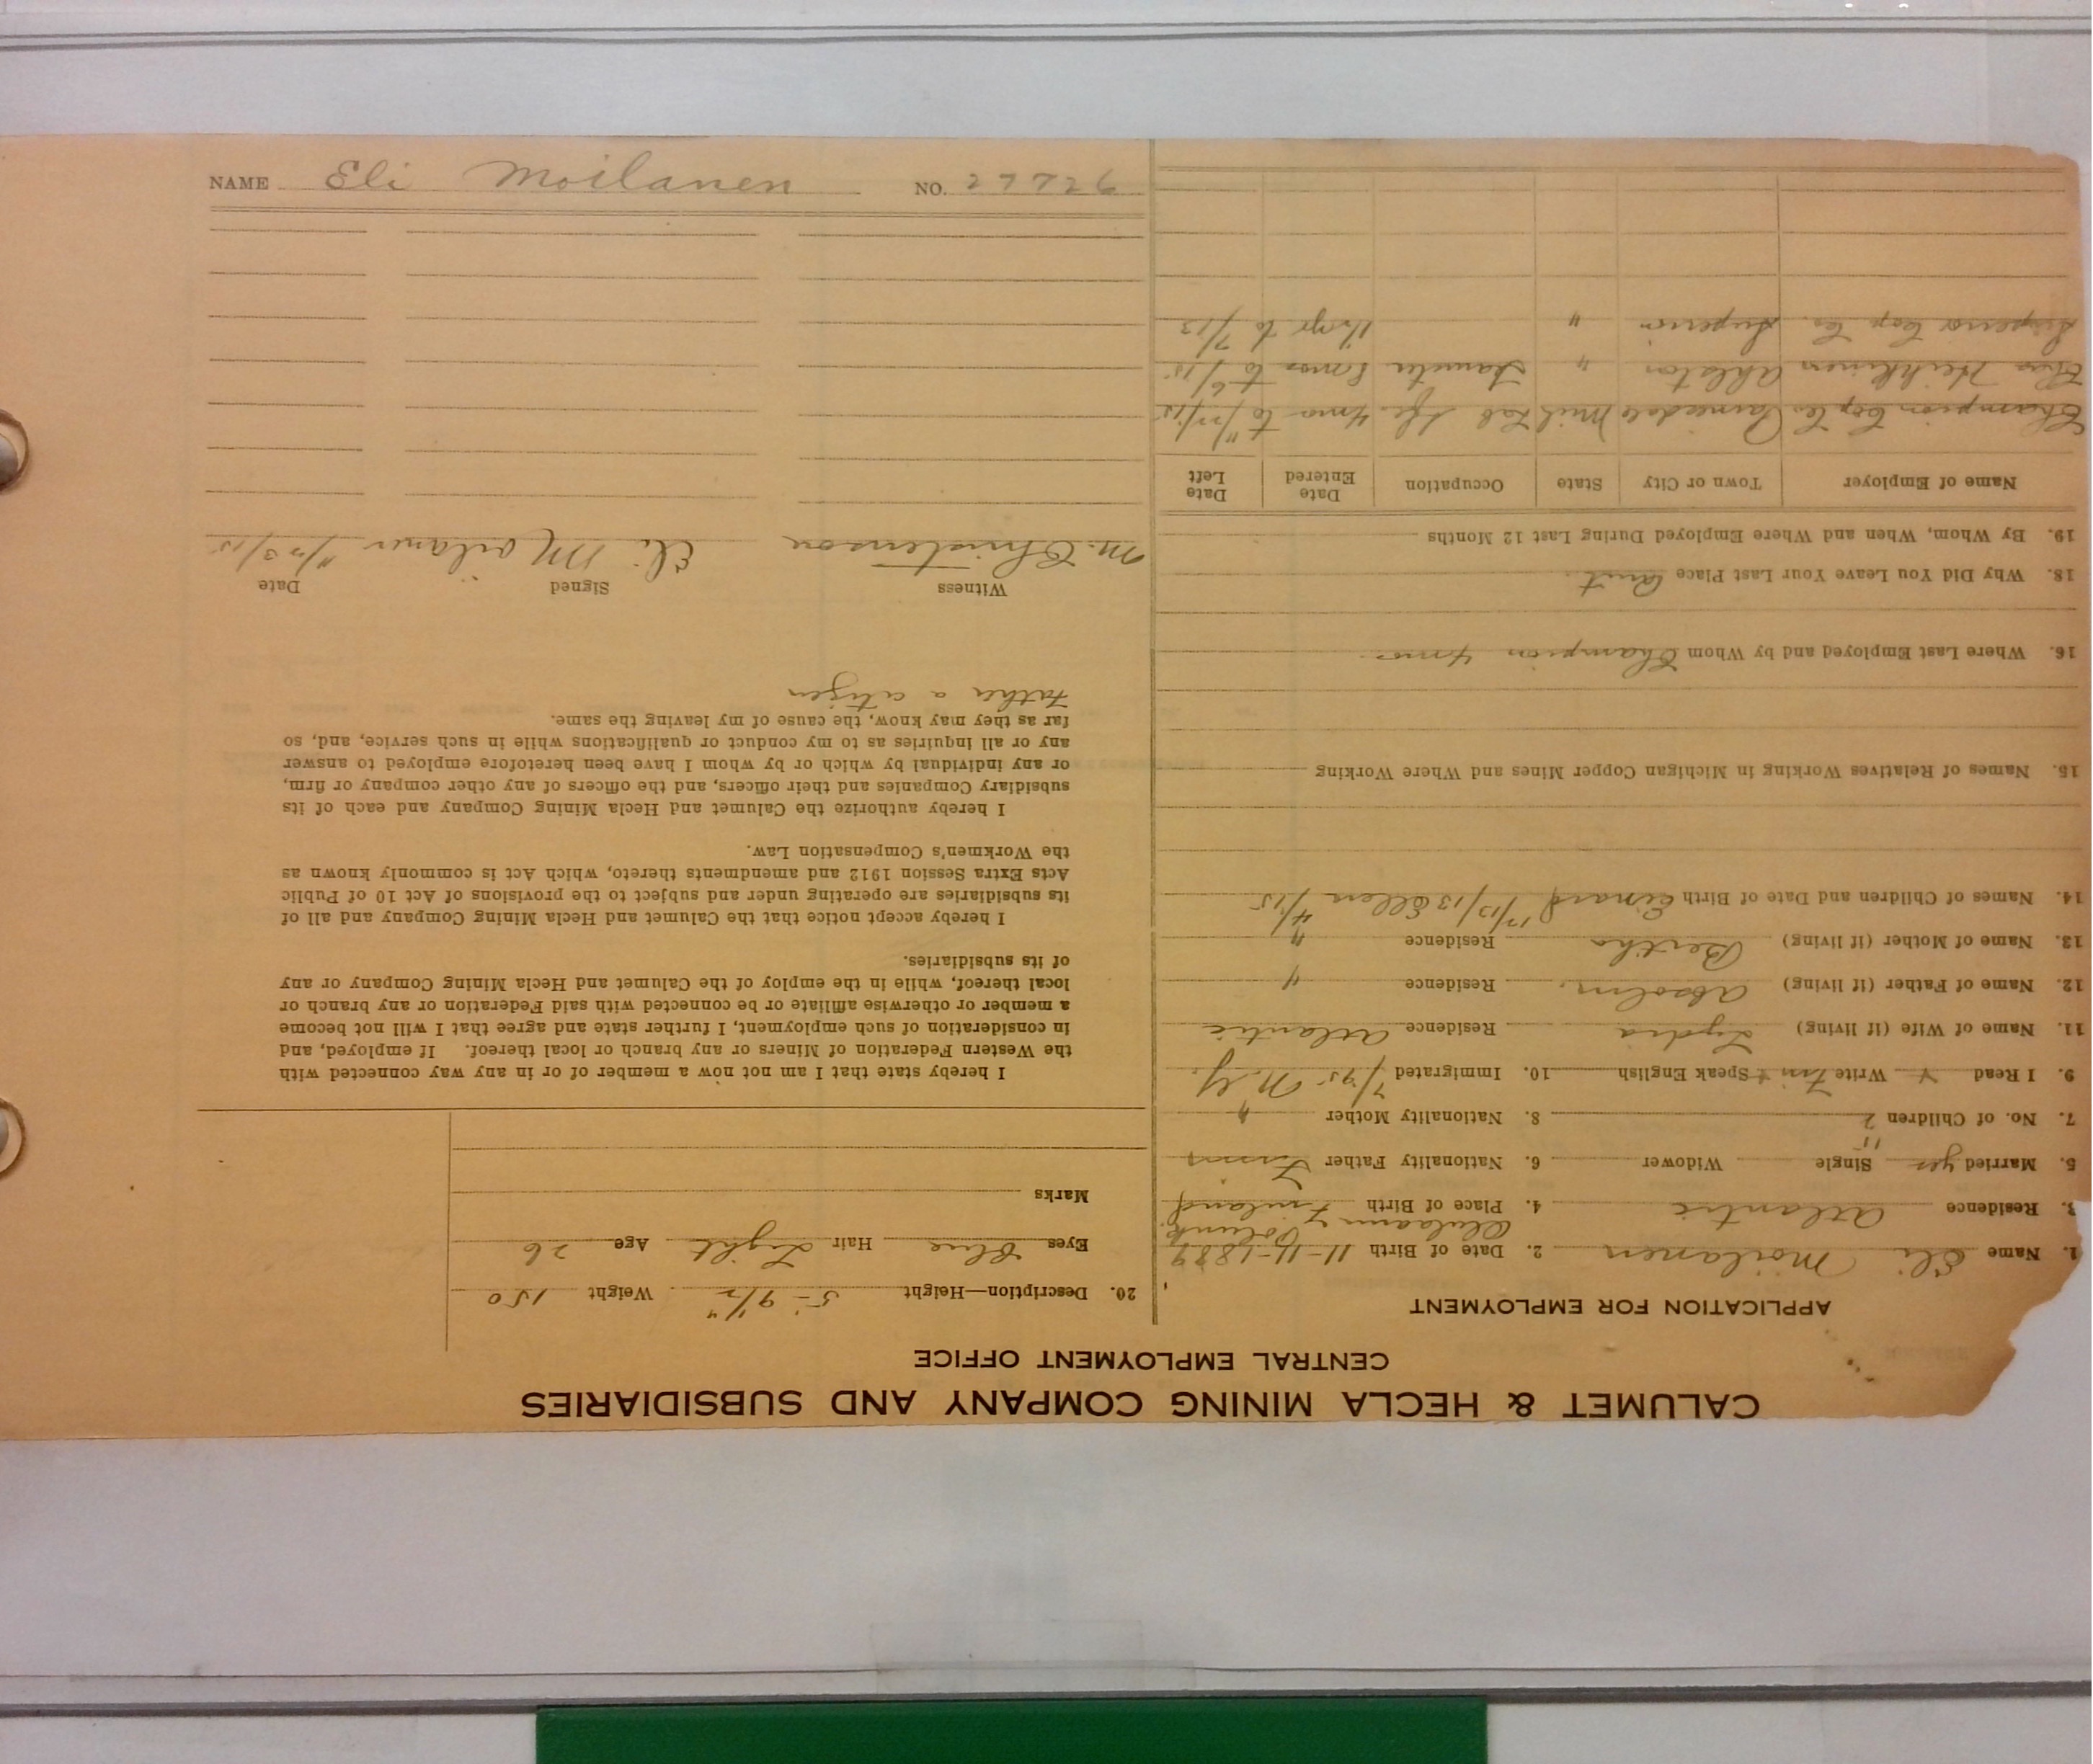 CALUMET & HECLA MINING COMPANY AND SUBSIDIARIES
CENTRAL EMPLOYMENT OFFICE
APPLICATION FOR EMPLOYMENT
1. Name Eli Moilanen 2. Date of Birth 11-11-1889
3. Residence Atlantic 4. Place of Birth Finland
5. Married yes Single Widower 6. Nationality Father Finn
7. No. of Children 2 8. Nationality Mother "
9. I Read Write Finn Speak English 10. Immigrated 7/95 N.Y.
11. Name of Wife (if living) Lydia Residence Atlantic
12. Name of Father (if living) Absolm Residence "
13. Name of Mother (if living) Bertha Residence "
14. Names of Children and Date of Birth Einard 12/13/13 Ellen 4/15
15. Names of Relatives Working in Michigan Copper Mines and Where Working
16. Where Last Employed and by Whom Champion 4 mos.
18. Why Did You Leave Your Last Place
19. By Whom, When and Where Employed During Last 12 Months
Name of Employer Town or City State Occupation Date Entered Date Left
Champion Cop Co. Painesdale Mich 4 mos to 11/22/15
Heikkinen " 8 mos to 6/15
Superior Cop Co. Superior " to 7/13
20. Description—Height 5-9 1/2" Weight 150
Eyes Blue Hair Light Age 26
Marks
I hereby state that I am not now a member of or in any way connected with
the Western Federation of Miners or any branch or local thereof. If employed, and
in consideration of such employment, I further state and agree that I will not become
a member or otherwise affiliate or be connected with said Federation or any branch or
local thereof, while in the employ of the Calumet and Hecla Mining Company or any
of its subsidiaries.
I hereby accept notice that the Calumet and Hecla Mining Company and all of
its subsidiaries are operating under and subject to the provisions of Act 10 of Public
Acts Extra Session 1912 and amendments thereto, which Act is commonly known as
the Workmen's Compensation Law.
I hereby authorize the Calumet and Hecla Mining Company and each of its
subsidiary Companies and their officers, and the officers of any other company or firm,
or any individual by which or by whom I have been heretofore employed to answer
any or all inquiries as to my conduct or qualifications while in such service, and, so
far as they may know, the cause of my leaving the same.
Father a citizen
Witness Signed Date
M. Christenson Eli Moilanen 11/23/15
NAME Eli Moilanen NO. 27726